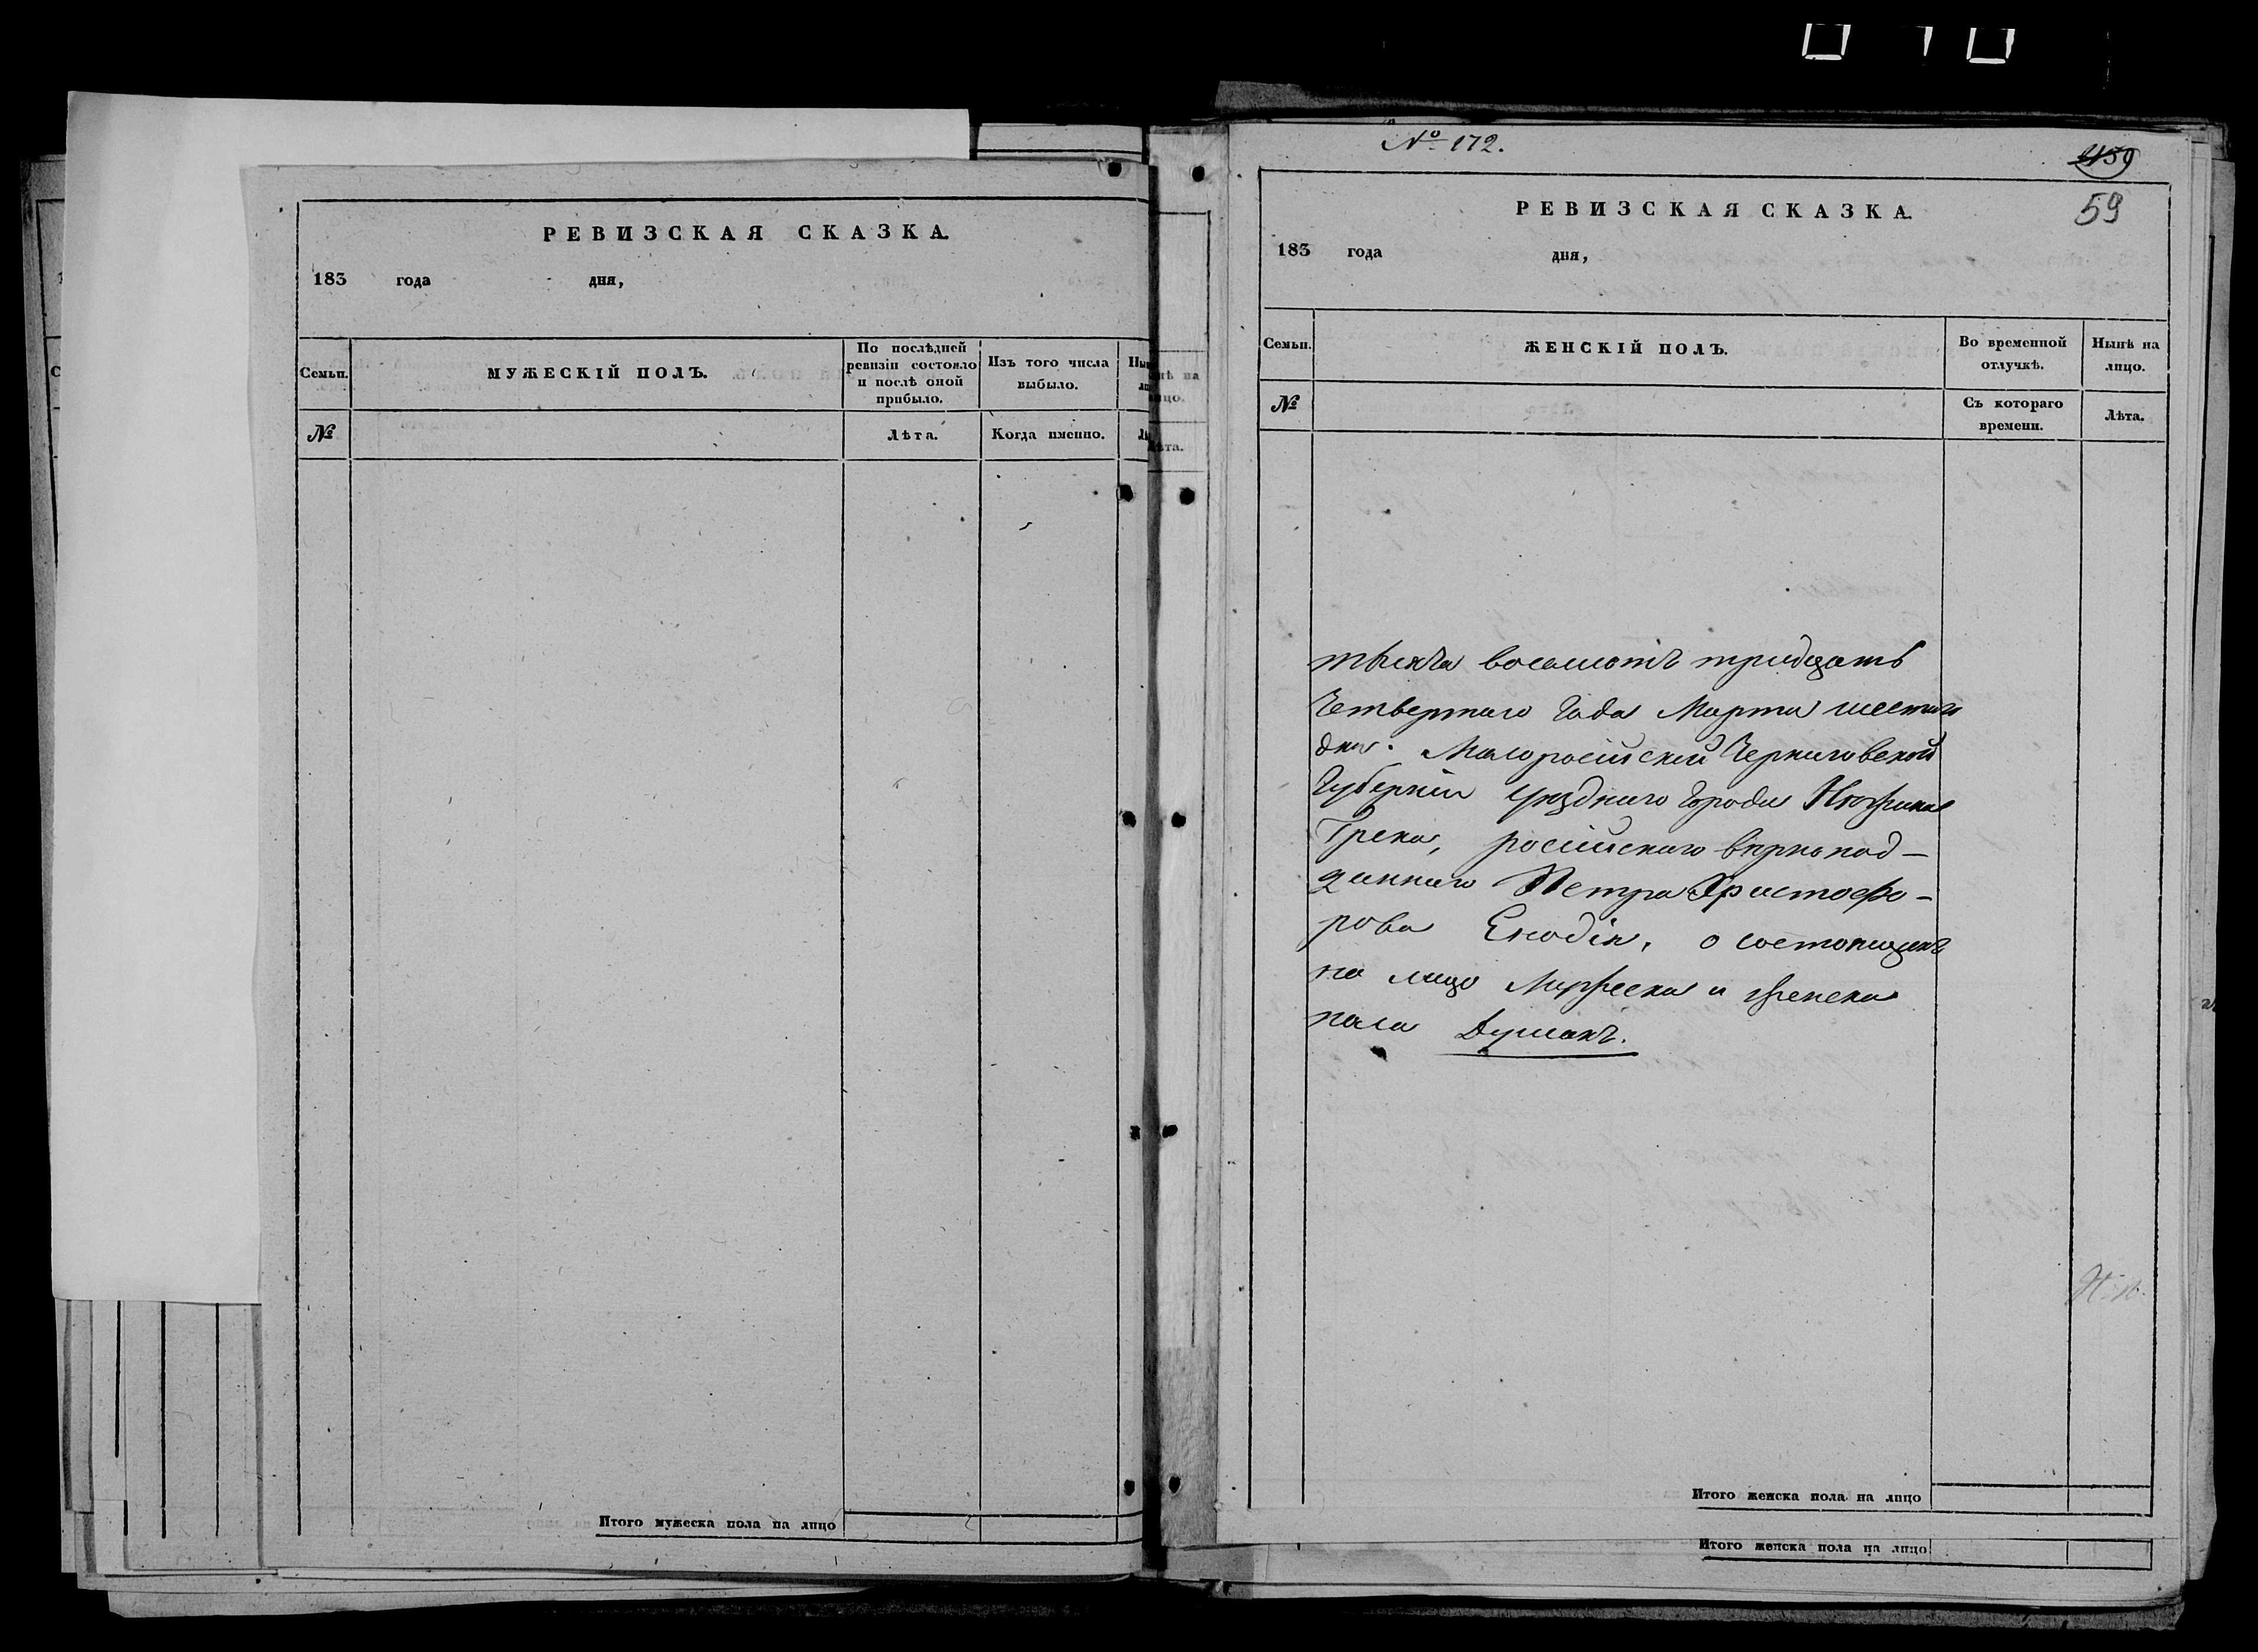 РЕВИЗСКАЯ СКАЗКА.
183 года дня,
Семьи.
МУЖЕСКІЙ ПОЛЪ.
По послѣдней
ревизіи состояло
и послѣ оной
прибыло.
Изъ того числа
выбыло.
№
Лѣта.
Когда именно.
Итого мужеска пола на лицо
№ 172.
59
РЕВИЗСКАЯ СКАЗКА.
183 года дня,
Семьи.
ЖЕНСКІЙ ПОЛЪ.
Во временной
отлучкѣ.
Нынѣ на
лицо.
№
Съ котораго
времени.
Лѣта.
тысяча восемсотъ тридцать
Четвертаго Года Марта шестаго
дня. Малоросійской Черниговской
Губерніи уѣзднаго города Нѣжина
Грека, російскаго вѣрнопод-
даннаго Петра Христофо-
рова о состоящихъ
на лицо Мужеска и женска
пола Душахъ.
Итого женска пола на лицо
Итого женска пола на лицо